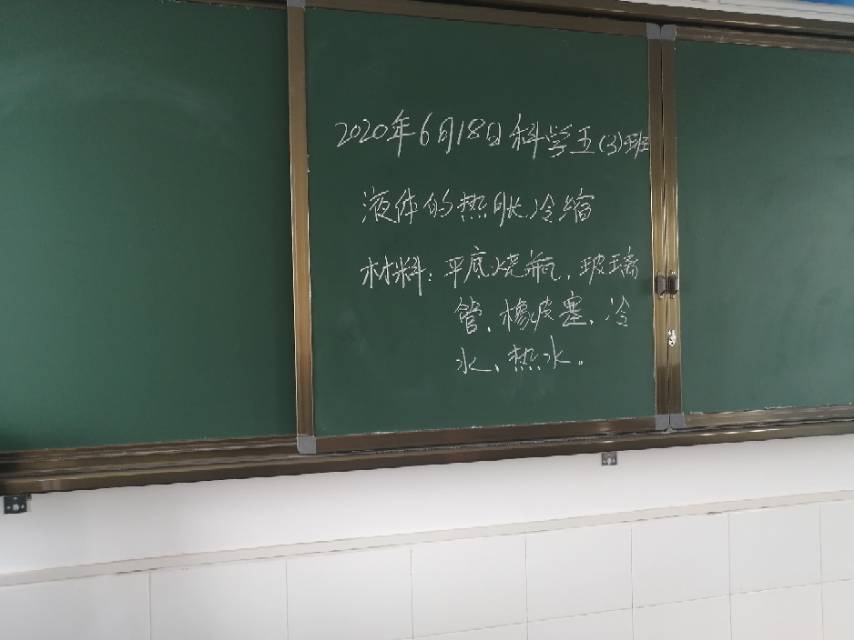 2020年6月18日科学五(3)班
液体的热胀冷缩
材料:平底烧瓶、玻璃
管、橡皮塞、冷
水、热水。